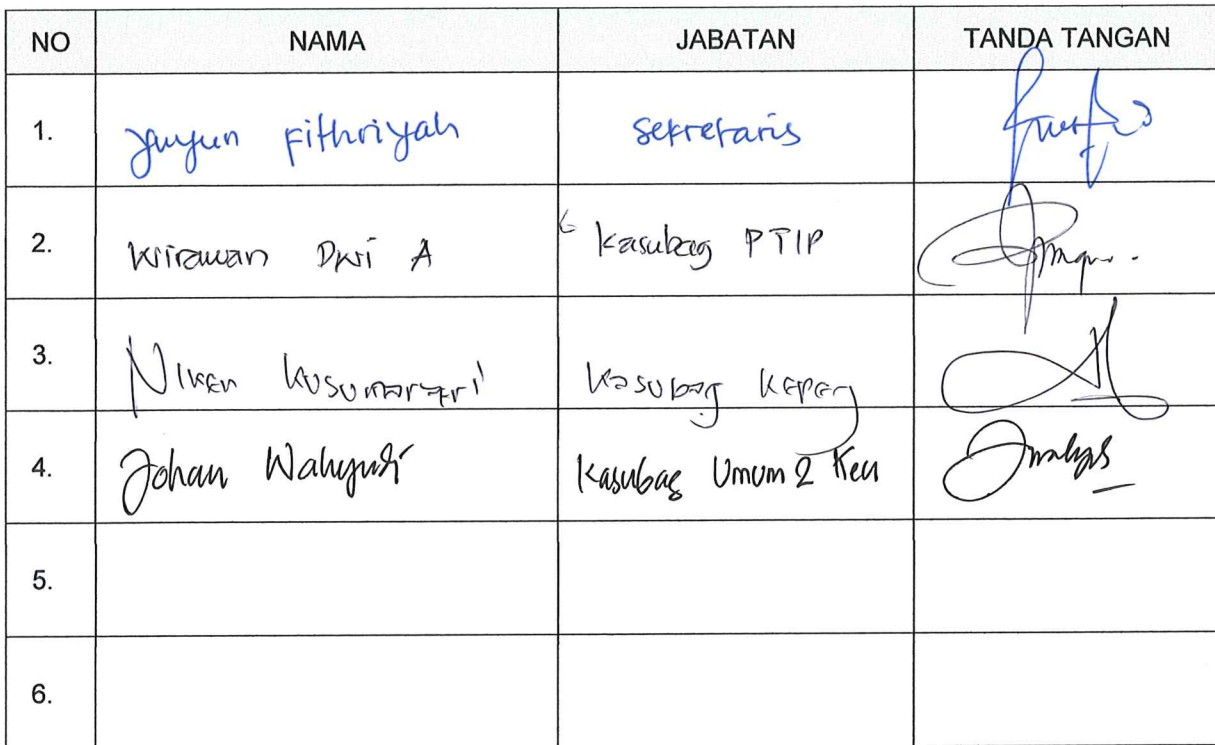 NO NAMA JABATAN TANDA TANGAN
1. Yuyun Fithriyah Sekretaris
2. Wirawan Dwi A Kasubag PTIP
3. Niken Kusumarari Kasubag Kepeg
4. Johan Wahyudi Kasubag Umum & Keu
5.
6.